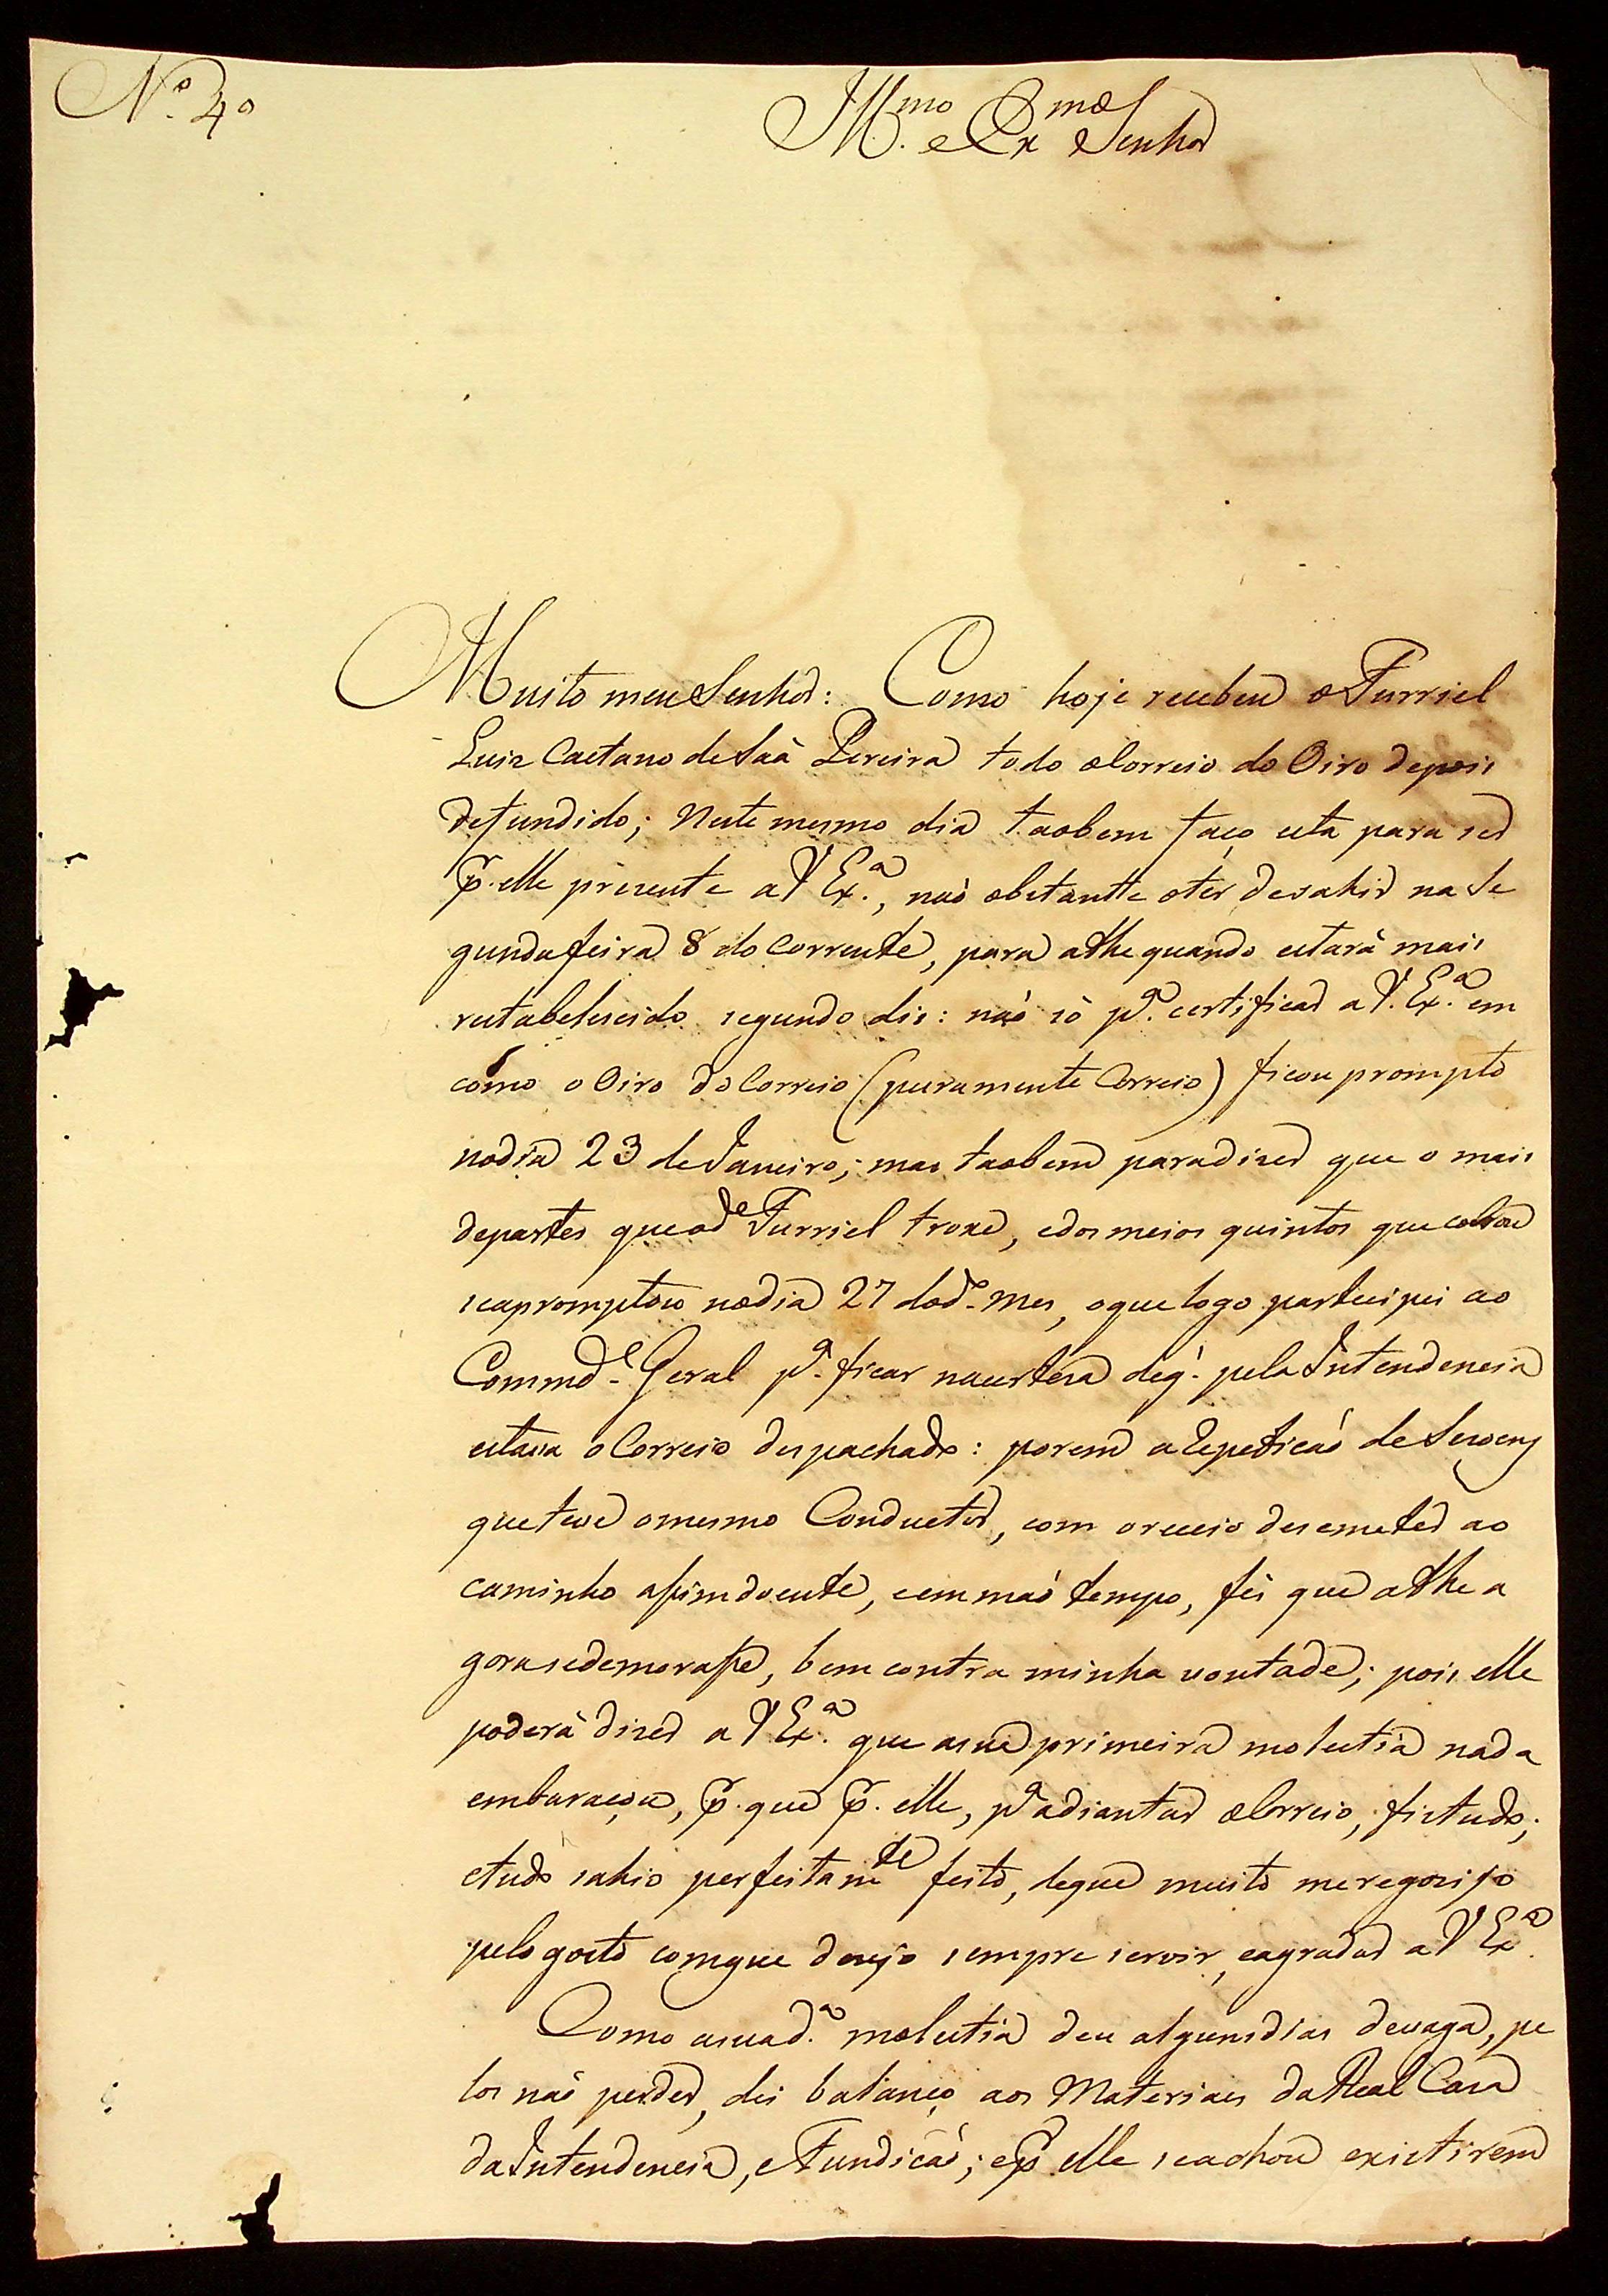 Nº. 4º
Ill.mo e Ex.mo Senhor
Muito meu Senhor: Como hoje recebeu o Furriel
Luis Caetano de Saà Pereira todo o Correio do Oiro depois
defundido; Neste mesmo dia taobem faço esta para ser
p.r elle prezente a V Ex.a, naõ obstantte o ter de sahir na Se
gunda feira 8 do Corrente, para athe quando estarà mais
restabelescido segundo dis: naõ sò p.a certificar a V. Ex.a em
como o Oiro do Correio (puramente Correio) ficou prompto
no dia 23 de Janeiro; mas taobem para dizer que o mais
de partes que o d.e Furriel troxe, e dos meios quintos que cobrou
se apromptou no dia 27 do d.o mes, o que logo partecipei ao
Commd.e Geral p.a ficar na certeza de q.' pela Intendencia
estava o Correio despachado: porem a repetiçaõ de Sezoens
que teve o mesmo Conductor, com o receio de se meter ao
caminho assim doente, e em maò tempo, fès que athe a
gora se demorasse, bem contra minha vontade; pois elle
poderà dizer a V Ex.a que a sua primeira molestia nada
embaraçou, p.r que p.r elle, p.a adiantar o Correio, fis tudo;
e tudo sahio perfeitam.te feito, de que muito me regozijo
pelo gosto com que dezejo sempre servir, e agradar a V Ex.a
Como a sua d.a molestia deu alguns dias de vaga, pe
los naõ perder, dei balanço aos Materiaes da Real Casa
da Intendencia, e Fundiçaõ; e p.r elle se achou existirem